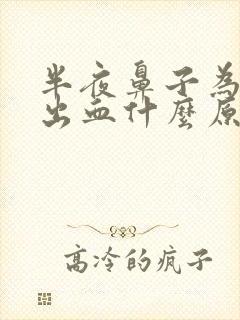 半夜鼻子為
出血什麼原
高冷的疯子